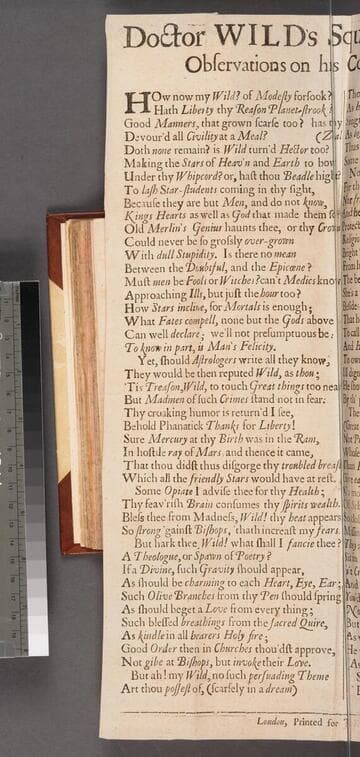 Doctor WILD's Squ
Observations on his Co
HOw now my Wild? of Modesty forsook?
Hath Liberty thy Reason Planet-strook?
Good Manners, that grown scarse too? has thy
Devour'd all Civility at a Meal?
Doth none remain? is Wild turn'd Hector too?
Making the Stars of Heav'n and Earth to bow
Under thy Whipcord? or, hast thou Beadle hight?
To lash Star-students coming in thy sight,
Because they are but Men, and do not know,
Kings Hearts as well as God that made them so?
Old Merlin's Genius haunts thee, or thy
Could never be so grossly over-grown
With dull Stupidity. Is there no mean
Between the Doubtful, and the Epicæne?
Must men be Fools or Witches? can't Medics know
Approaching Ills, but just the hour too?
How Stars incline, for Mortals is enough;
What Fates compell, none but the Gods above
Can well declare; we'll not presumptuous be:
To know in part, is Man's Felicity.
Yet, should Astrologers write all they know,
They would be then reputed Wild, as thou;
'Tis Treason, Wild, to touch Great things too near
But Madmen of such Crimes stand not in fear.
Thy croaking humor is return'd I see,
Behold Phanatick Thanks for Liberty!
Sure Mercury at thy Birth was in the Ram,
In hostile ray of Mars, and thence it came,
That thou didst thus disgorge thy troubled breast
Which all the friendly Stars would have at rest.
Some Opiate I advise thee for thy Health;
Thy feav'rish Brain consumes thy spirits wealth.
Bless thee from Madness, Wild! thy heat appears
So strong 'gainst Bishops, 'thath increast my fears.
But hark thee Wild! what shall I fancie thee?
A Theologue, or Spawn of Poetry?
If a Divine, such Gravity should appear,
As should be charming to each Heart, Eye, Ear;
Such Olive Branches from thy Pen should spring
As should beget a Love from every thing;
Such blessed breathings from the sacred Quire,
As kindle in all hearers Holy fire;
Good Order then in Churches thou'dst approve,
Not gibe at Bishops, but invoke their Love.
But ah! my Wild, no such persuading Theme
Art thou possest of, (scarsely in a dream)
London, Printed for